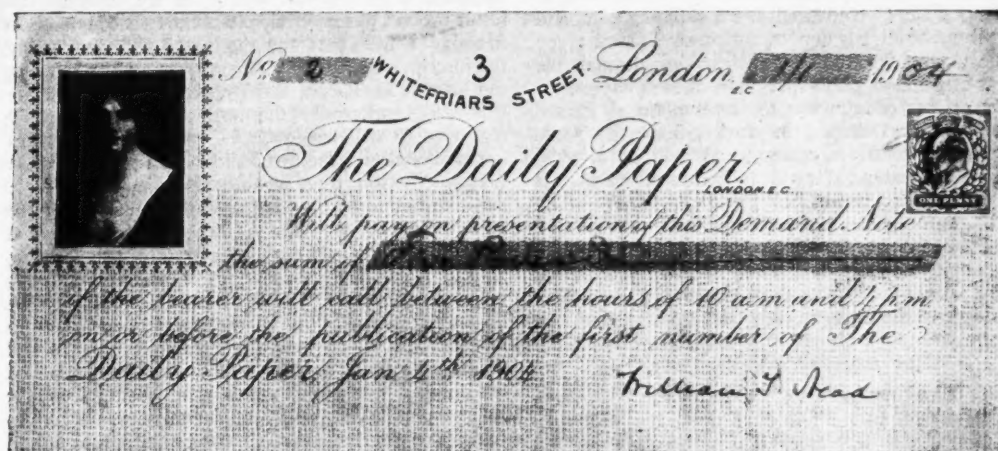 No. 2 3 WHITEFRIARS STREET. London. E.C 1/1 1904
The Daily Paper
LONDON. E.C.
ONE PENNY
Will pay on presentation of this Demand Note
the sum of
if the bearer will call between the hours of 10 a.m until 4 p.m
on or before the publication of the first number of The
Daily Paper, Jan 4th 1904
William T. Stead